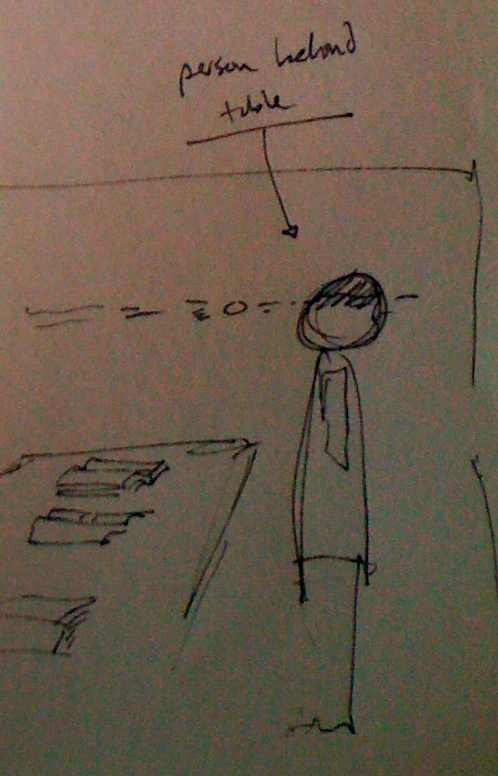 person behind
table